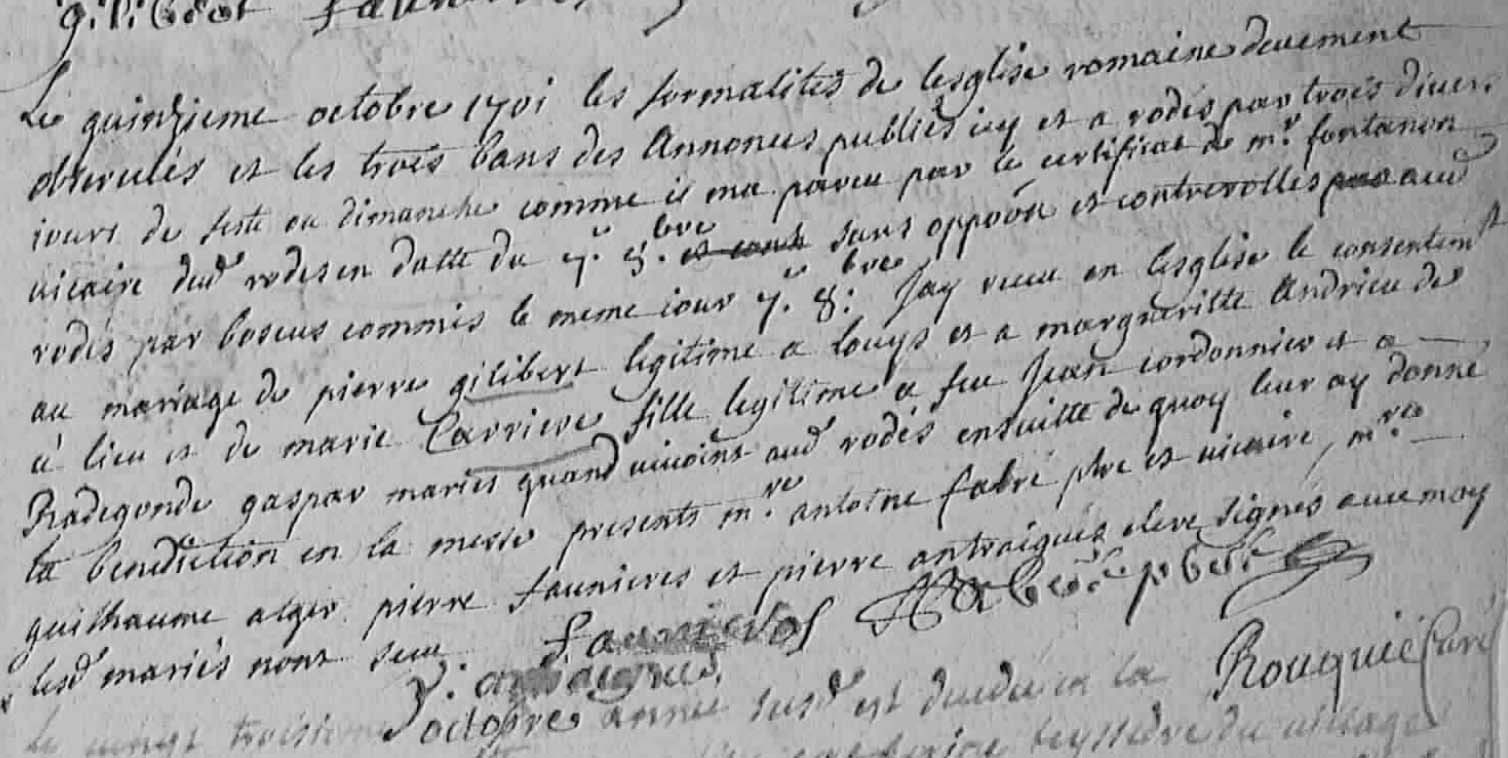 Le quinzieme octobre 1701 les formalités de lesglise romaine deuement
obseruées et les trois bans des Annonces publiés icy et a rodés par trois diuers
iours de feste ou dimanche comme il ma paru par le certificat de mr. fontanon
uicaire dud rodes en datte du 7e. 8.bre et cont sans oppoon et controrolles pas aud
rodés par boscus commis le meme iour 7e. 8.bre Jay receu en lesglise le consentimt
au mariage de pierre gilibert legitime a louys et a margueritte Andrieu de
ce lieu et de marie Carriere fille legitime a feu Jean cordonnier et a
Radegonde gaspar mariés quand uiuoint aud rodés ensuitte de quoy leur ay donné
la benediction en la messe presents mre. antoine fabre pbre et uicaire, mre.
guilhaume alger pierre faunieres et pierre antraigues clerc signés auec moy
lesd mariés nont sceu faunieres Fabre pbre
p. antraigues Rouquié Curé
Le uingt troisieme octobre année susd est decedee en la
teyssedre du uillage